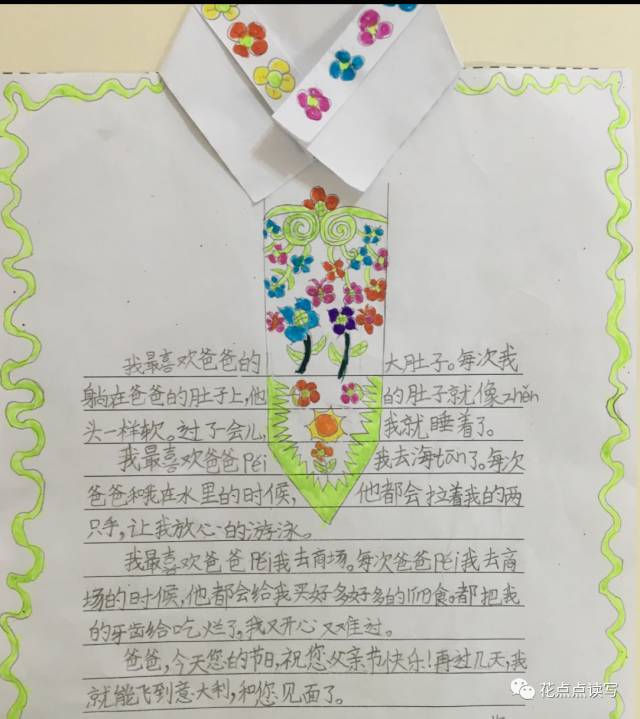 我最喜欢爸爸的大肚子。每次我
躺在爸爸的肚子上,他的肚子就像zhěn
头一样软。过了一会儿,我就睡着了。
我最喜欢爸爸Péi我去海tān了。每次
爸爸和我在水里的时候,他都会拉着我的两
只手,让我放心的游泳。
我最喜欢爸爸Péi我去商场。每次爸爸Péi我去商
场的时候,他都会给我买好多好多的líng食。都把我
的牙齿给吃烂了。我又开心又难过。
爸爸,今天您的节日,祝您父亲节快乐!再过几天,我
就能飞到意大利,和您见面了。
花点点读写